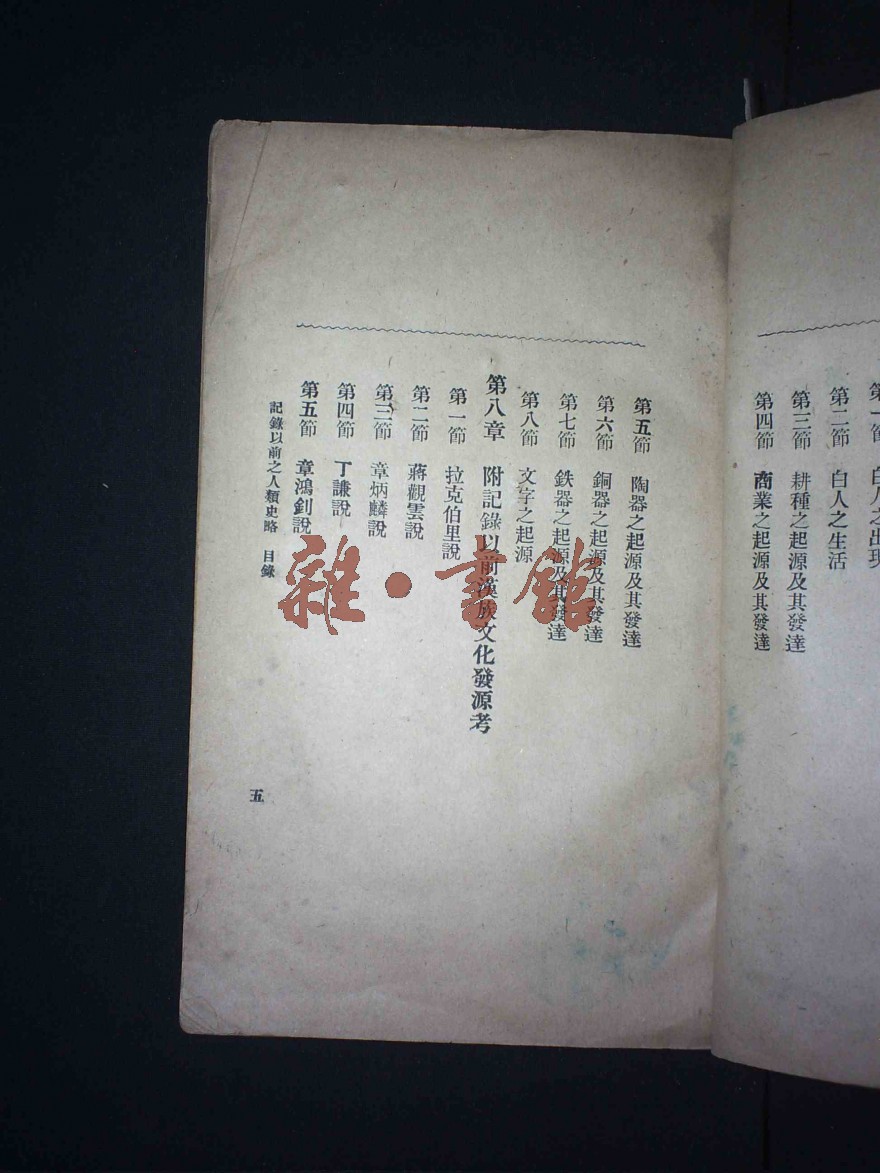 第一節 白人之出現
第二節 白人之生活
第三節 耕種之起源及其發達
第四節 商業之起源及其發達
第五節 陶器之起源及其發達
第六節 銅器之起源及其發達
第七節 鉄器之起源及其發達
第八節 文字之起源
第八章 附記錄以前漢族文化發源考
第一節 拉克伯里說
第二節 蔣觀雲說
第三節 章炳麟說
第四節 丁謙說
第五節 章鴻釗說
記錄以前之人類史略 目錄
五
雜·書館